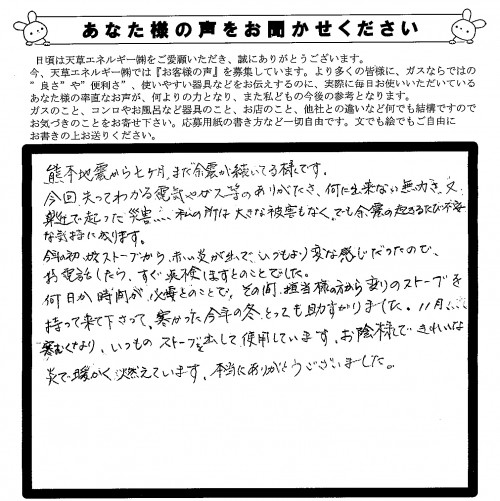 あなた様の声をお聞かせください
日頃は天草エネルギー㈱をご愛顧いただき、誠にありがとうございます。
今、天草エネルギー㈱では『お客様の声』を募集しています。より多くの皆様に、ガスならではの
”良さ”や”便利さ”、使いやすい器具などをお伝えするのに、実際に毎日お使いいただいている
あなた様の率直なお声が、何よりの力となり、また私どもの今後の参考となります。
ガスのこと、コンロやお風呂など器具のこと、お店のこと、他社との違いなど何でも結構ですので
お気づきのことをお寄せ下さい。応募用紙の書き方など一切自由です。文でも絵でもご自由に
お書きの上お送りください。
熊本地震から七ヶ月、まだ余震が続いてる様です。
今回失ってわかる電気やガス等のありがたさ、何に出来ない無力さ、又
身近で起った災害… 私の所は大きな被害もなく、でも余震の起きるたび不安
な気持に成ります。
今年の初めストーブから、赤い炎が出て、いつもより変な感じだったので、
お電話したら、すぐ点検しますとのことでした。
何日か時間が必要とのことで、その間、担当様の方から変りのストーブを
持って来て下さって、寒かった今年の冬、とっても助すかりました。11月に入り
寒むくなり、いつものストーブを出して使用しています。お陰様できれいな
炎で暖かく燃えています。本当にありがとうございました。